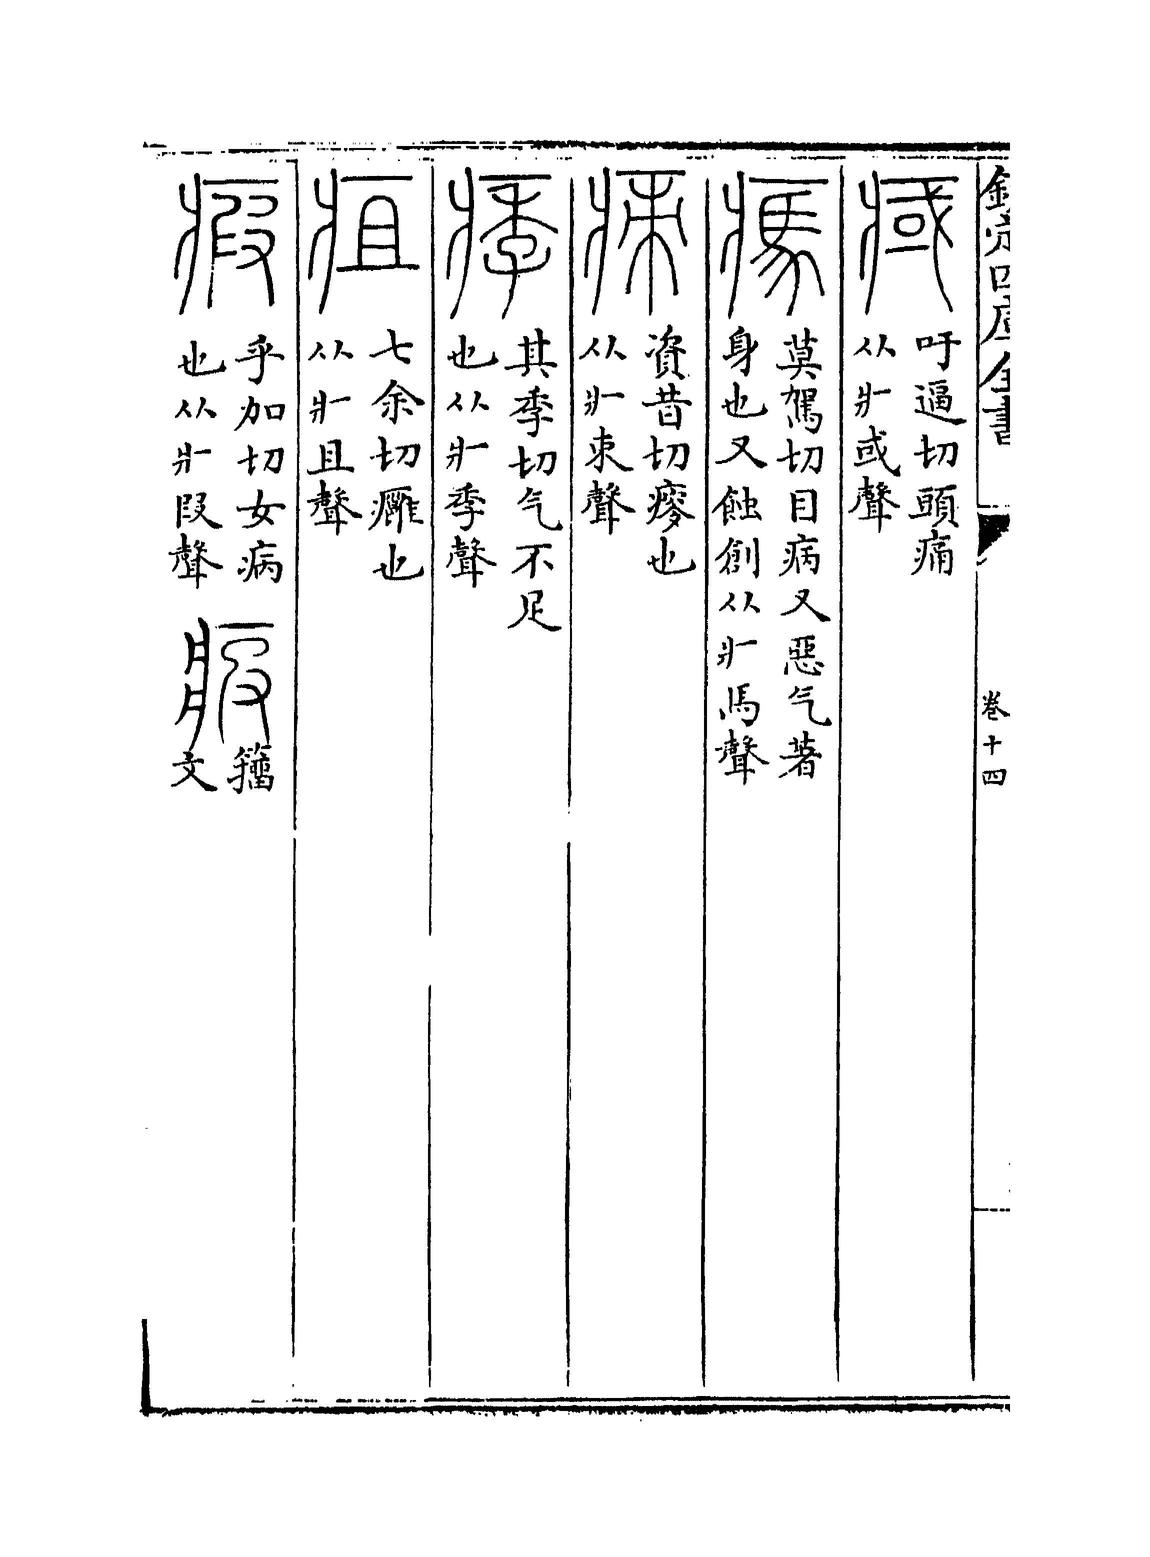 欽定四庫全書
卷十四
吁逼切頭痛
从疒或聲
莫駕切目病又惡气著
身也又蝕創从疒馬聲
資昔切瘳也
从疒朿聲
痵
其季切气不足
也从疒季聲
疽
七余切癰也
从疒且聲
瘕
乎加切女病
也从疒叚聲
籀
文